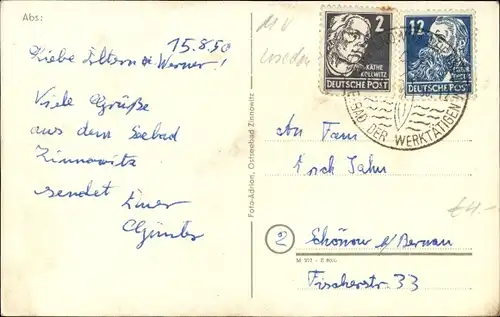 Abs:
15.8.50
Liebe Eltern u. Werner!
Viele Grüße
aus dem Seebad
Zinnowitz
sendet Euer
Günter
Foto-Adrion, Ostseebad Zinnowitz
Usedom
2
KÄTHE
KOLLWITZ
DEUTSCHE POST
12
DEUTSCHE POST
BAD DER WERKTÄTIGEN
An Fam
Erich Jahn
2
Schönow b/Bernau
Fischerstr. 33